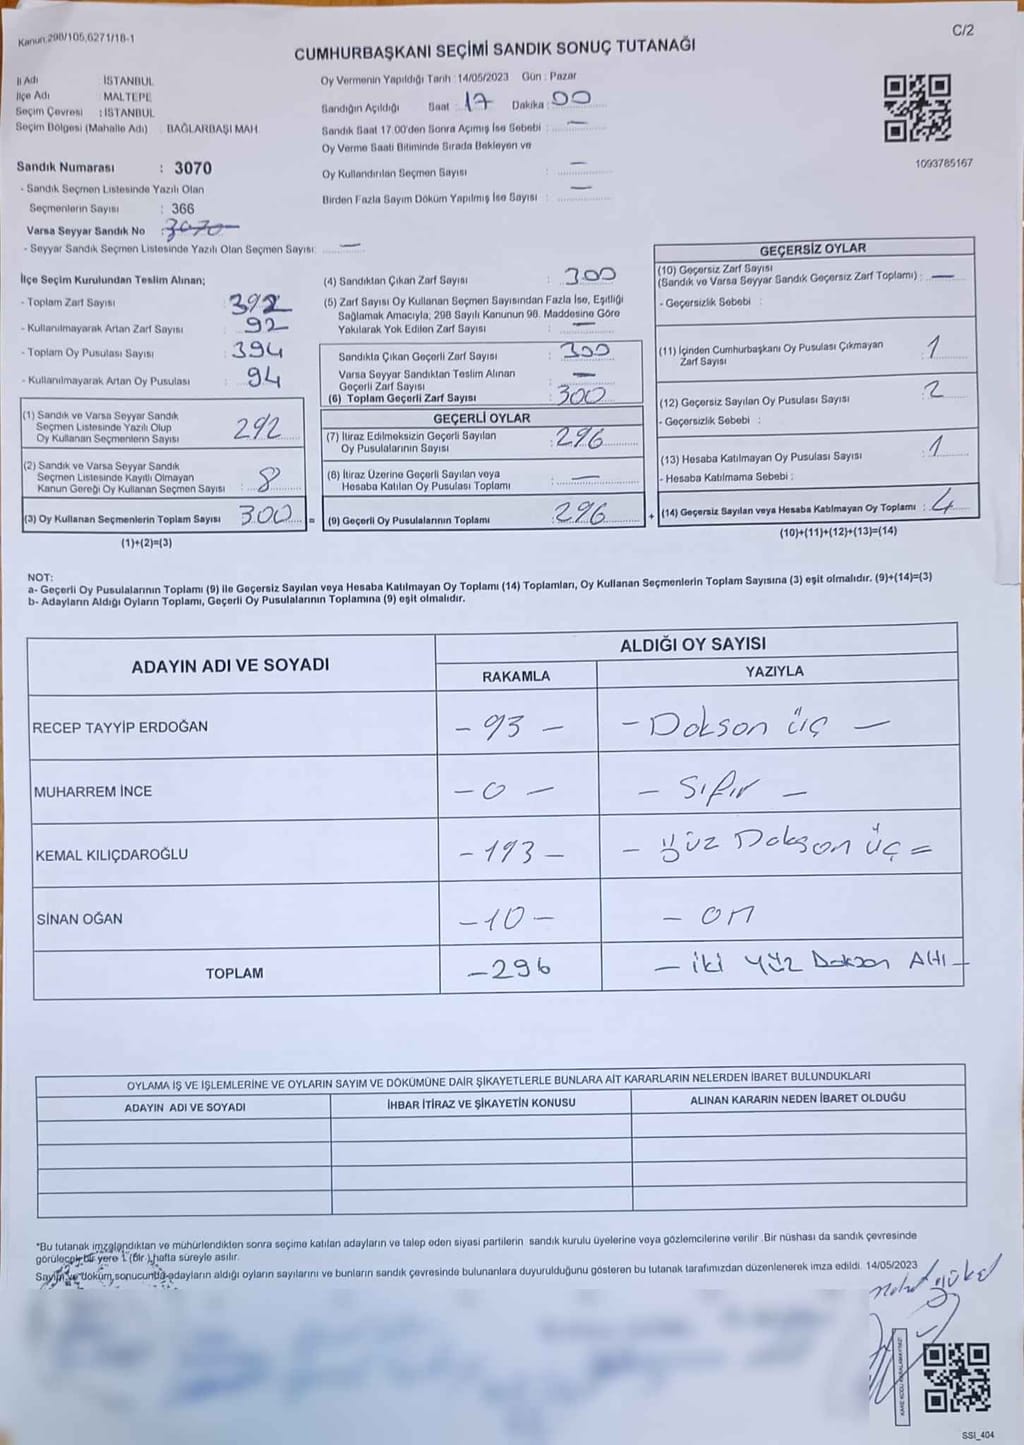 Kanun,298/105,6271/18-1
C/2
CUMHURBAŞKANI SEÇİMİ SANDIK SONUÇ TUTANAĞI
İl Adı İSTANBUL
İlçe Adı MALTEPE
Seçim Çevresi : İSTANBUL
Seçim Bölgesi (Mahalle Adı) : BAĞLARBAŞI MAH.
Sandık Numarası : 3070
- Sandık Seçmen Listesinde Yazılı Olan
Seçmenlerin Sayısı : 366
Varsa Seyyar Sandık No : 3070
- Seyyar Sandık Seçmen Listesinde Yazılı Olan Seçmen Sayısı: —
Oy Vermenin Yapıldığı Tarih :14/05/2023 Gün : Pazar
Sandığın Açıldığı Saat : 17 Dakika : 00
Sandık Saat 17.00'den Sonra Açımış İse Sebebi : —
Oy Verme Saati Bitiminde Sırada Bekleyen ve
Oy Kullandırılan Seçmen Sayısı : —
Birden Fazla Sayım Döküm Yapılmış İse Sayısı : —
1093785167
İlçe Seçim Kurulundan Teslim Alınan;
- Toplam Zarf Sayısı : 392
- Kullanılmayarak Artan Zarf Sayısı : 92
- Toplam Oy Pusulası Sayısı : 394
- Kullanılmayarak Artan Oy Pusulası : 94
(1) Sandık ve Varsa Seyyar Sandık
Seçmen Listesinde Yazılı Olup
Oy Kullanan Seçmenlerin Sayısı : 292
(2) Sandık ve Varsa Seyyar Sandık
Seçmen Listesinde Kayıtlı Olmayan
Kanun Gereği Oy Kullanan Seçmen Sayısı : 8
(3) Oy Kullanan Seçmenlerin Toplam Sayısı : 300 =
(1)+(2)=(3)
(4) Sandıktan Çıkan Zarf Sayısı : 300
(5) Zarf Sayısı Oy Kullanan Seçmen Sayısından Fazla İse, Eşitliği
Sağlamak Amacıyla; 298 Sayılı Kanunun 98. Maddesine Göre
Yakılarak Yok Edilen Zarf Sayısı : —
Sandıkta Çıkan Geçerli Zarf Sayısı : 300
Varsa Seyyar Sandıktan Teslim Alınan
Geçerli Zarf Sayısı : —
(6) Toplam Geçerli Zarf Sayısı : 300
GEÇERLİ OYLAR
(7) İtiraz Edilmeksizin Geçerli Sayılan
Oy Pusulalarının Sayısı : 296
(8) İtiraz Üzerine Geçerli Sayılan veya
Hesaba Katılan Oy Pusulası Toplamı : —
(9) Geçerli Oy Pusulalarının Toplamı : 296 +
GEÇERSİZ OYLAR
(10) Geçersiz Zarf Sayısı
(Sandık ve Varsa Seyyar Sandık Geçersiz Zarf Toplamı) : —
- Geçersizlik Sebebi :
(11) İçinden Cumhurbaşkanı Oy Pusulası Çıkmayan
Zarf Sayısı : 1
(12) Geçersiz Sayılan Oy Pusulası Sayısı : 2
- Geçersizlik Sebebi :
(13) Hesaba Katılmayan Oy Pusulası Sayısı : 1
- Hesaba Katılmama Sebebi :
(14) Geçersiz Sayılan veya Hesaba Katılmayan Oy Toplamı : 4
(10)+(11)+(12)+(13)=(14)
NOT:
a- Geçerli Oy Pusulalarının Toplamı (9) ile Geçersiz Sayılan veya Hesaba Katılmayan Oy Toplamı (14) Toplamları, Oy Kullanan Seçmenlerin Toplam Sayısına (3) eşit olmalıdır. (9)+(14)=(3)
b- Adayların Aldığı Oyların Toplamı, Geçerli Oy Pusulalarının Toplamına (9) eşit olmalıdır.
ADAYIN ADI VE SOYADI
ALDIĞI OY SAYISI
RAKAMLA YAZIYLA
RECEP TAYYİP ERDOĞAN - 93 - - Dokson üç -
MUHARREM İNCE - 0 - - Sıfır -
KEMAL KILIÇDAROĞLU - 193 - - Yüz Dokson üç =
SİNAN OĞAN - 10 - - on
TOPLAM - 296 - iki yüz Dokson Altı -
OYLAMA İŞ VE İŞLEMLERİNE VE OYLARIN SAYIM VE DÖKÜMÜNE DAİR ŞİKAYETLERLE BUNLARA AİT KARARLARIN NELERDEN İBARET BULUNDUKLARI
ADAYIN ADI VE SOYADI İHBAR İTİRAZ VE ŞİKAYETİN KONUSU ALINAN KARARIN NEDEN İBARET OLDUĞU
*Bu tutanak imzalandıktan ve mühürlendikten sonra seçime katılan adayların ve talep eden siyasi partilerin sandık kurulu üyelerine veya gözlemcilerine verilir .Bir nüshası da sandık çevresinde
görülecek bir yere 1 (Bir) hafta süreyle asılır.
Sayım ve döküm sonucunda adayların aldığı oyların sayılarını ve bunların sandık çevresinde bulunanlara duyurulduğunu gösteren bu tutanak tarafımızdan düzenlenerek imza edildi. 14/05/2023
KARE KODU KARALAMAYINIZ!
SSI_404